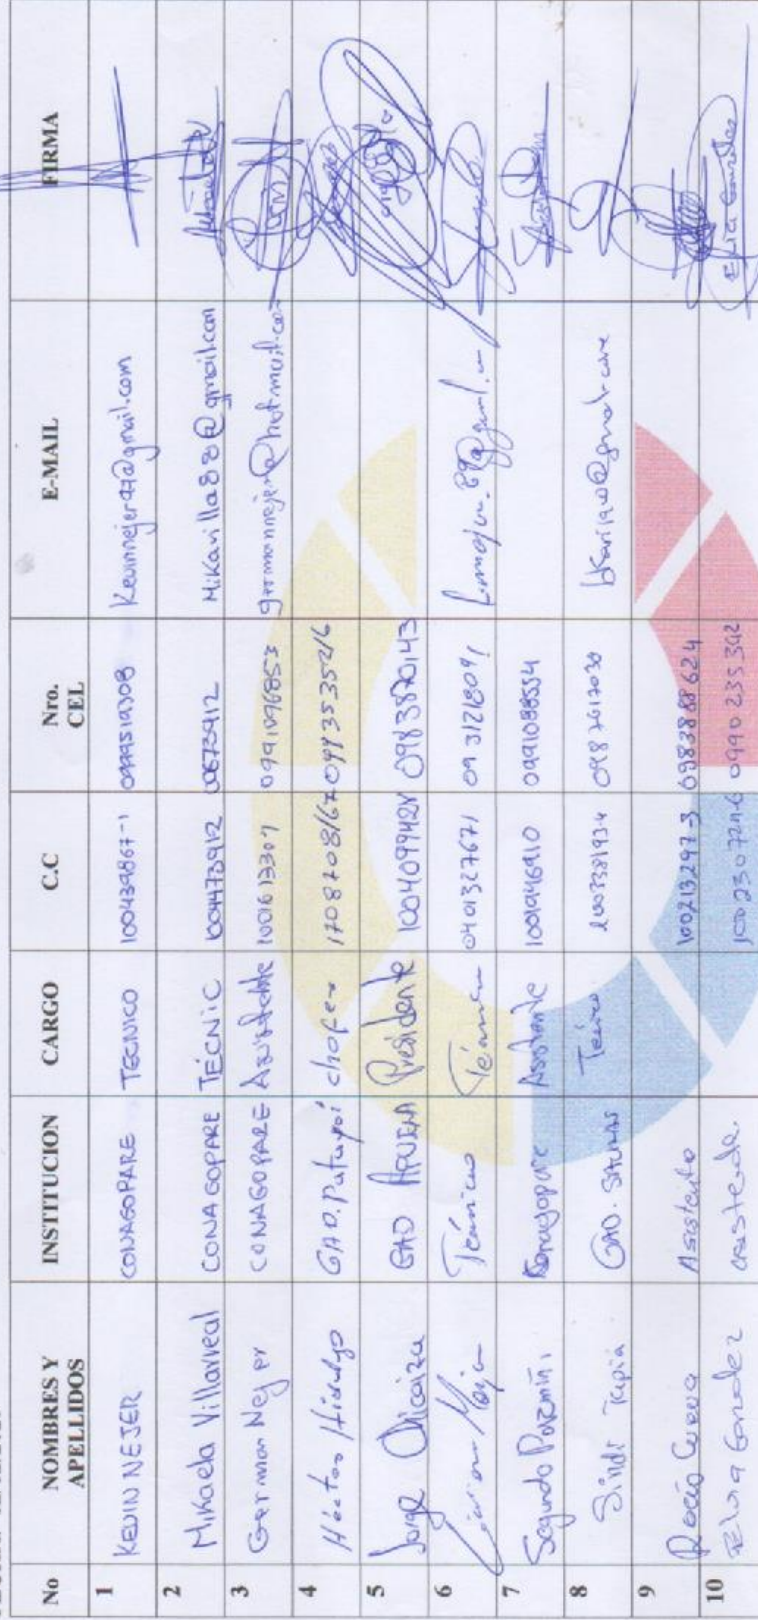 No NOMBRES Y APELLIDOS INSTITUCION CARGO C.C Nro. CEL E-MAIL FIRMA
1 KEVIN NEJER CONAGOPARE TECNICO 100439867-1 0999519308 Kevinnejer97@gmail.com
2 Mikaela Villarreal CONAGOPARE TÉCNIC 1004473912 00673912 Mikavilla88@gmail.com
3 German Nejer CONAGOPARE Asistente 1001613307 0991096853 germannejer@hotmail.com
4 Héctor Hidalgo GAD. Putupai chofer 1708708167 0993535216
5 Jorge Chicaiza GAD APUELA Presidente 1004099428 0983870143
6 Mejía Técnico Técnico 0401327671 0931218091
7 Segundo Pozmiñi Conagopare Asistente 1001946910 0991088534
8 Sindi Tapia GAD. SALINAS Técnico 200338193-4 0987617030
9 Rocío Cueva Asistente 100213297-3 0983888624
10 Elvia González asistente. 100230724-6 0990 235 342 Elvia González